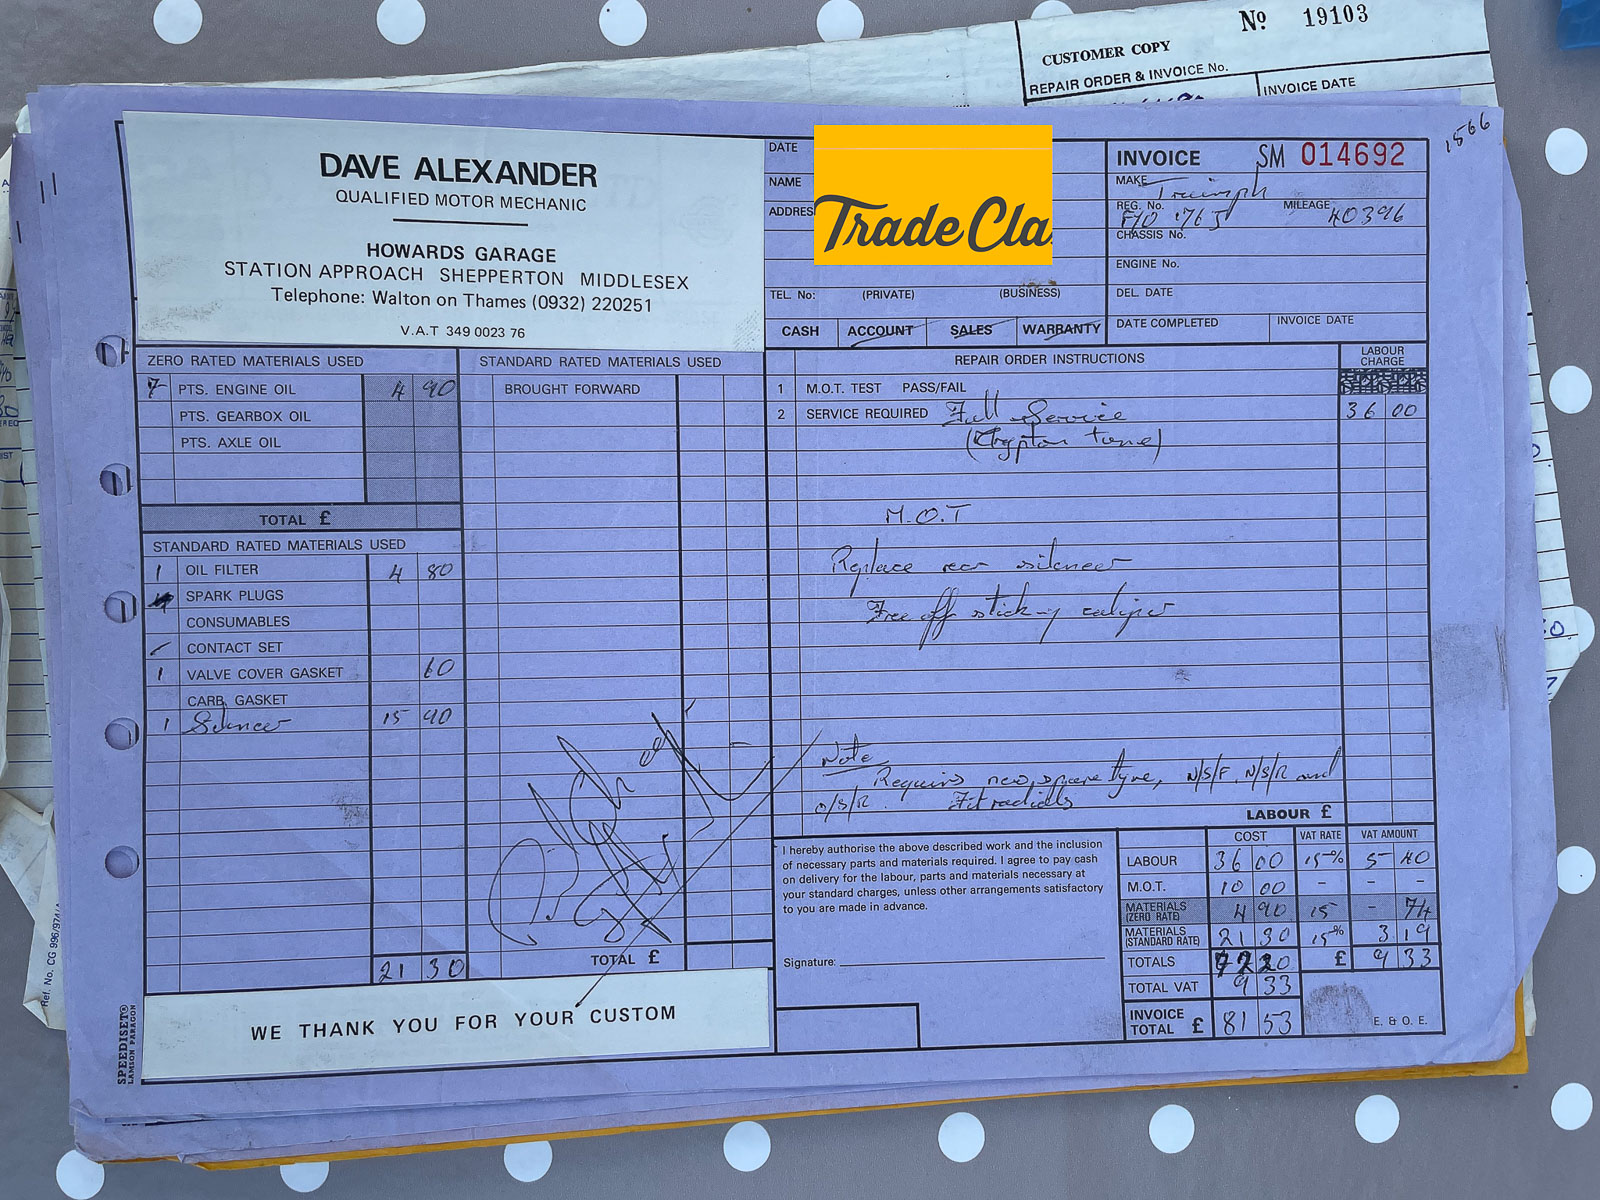 Nº 19103
CUSTOMER COPY
REPAIR ORDER & INVOICE No.
INVOICE DATE
1566
DAVE ALEXANDER
QUALIFIED MOTOR MECHANIC
HOWARDS GARAGE
STATION APPROACH SHEPPERTON MIDDLESEX
Telephone: Walton on Thames (0932) 220251
V.A.T 349 0023 76
DATE
NAME
ADDRES
TradeCla
TEL. No: (PRIVATE) (BUSINESS)
CASH ACCOUNT SALES WARRANTY
INVOICE SM 014692
MAKE Triumph
REG. No. MILEAGE 40396
CHASSIS No.
ENGINE No.
DEL. DATE
DATE COMPLETED INVOICE DATE
ZERO RATED MATERIALS USED
7 PTS. ENGINE OIL 4 90
PTS. GEARBOX OIL
PTS. AXLE OIL
TOTAL £
STANDARD RATED MATERIALS USED
1 OIL FILTER 4 80
4 SPARK PLUGS
CONSUMABLES
CONTACT SET
1 VALVE COVER GASKET 60
CARB. GASKET
1 Silencer 15 90
21 30
STANDARD RATED MATERIALS USED
BROUGHT FORWARD
TOTAL £
REPAIR ORDER INSTRUCTIONS LABOUR CHARGE
1 M.O.T. TEST PASS/FAIL
2 SERVICE REQUIRED Full Service 36 00
(Crypton tune)
M.O.T
Replace rear silencer
Free off sticking caliper
Note
Requires new spare tyre, N/S/F, N/S/R and
O/S/R. Fit radials
LABOUR £
I hereby authorise the above described work and the inclusion
of necessary parts and materials required. I agree to pay cash
on delivery for the labour, parts and materials necessary at
your standard charges, unless other arrangements satisfactory
to you are made in advance.
Signature:
COST VAT RATE VAT AMOUNT
LABOUR 36 00 15% 5 40
M.O.T. 10 00 - - -
MATERIALS (ZERO RATE) 4 90 15 - 74
MATERIALS (STANDARD RATE) 21 30 15% 3 19
TOTALS 72 20 £ 9 33
TOTAL VAT 9 33
INVOICE TOTAL £ 81 53
E. & O. E.
WE THANK YOU FOR YOUR CUSTOM
SPEEDISET®
LAMSON PARAGON
Ref. No. CG 996/974/